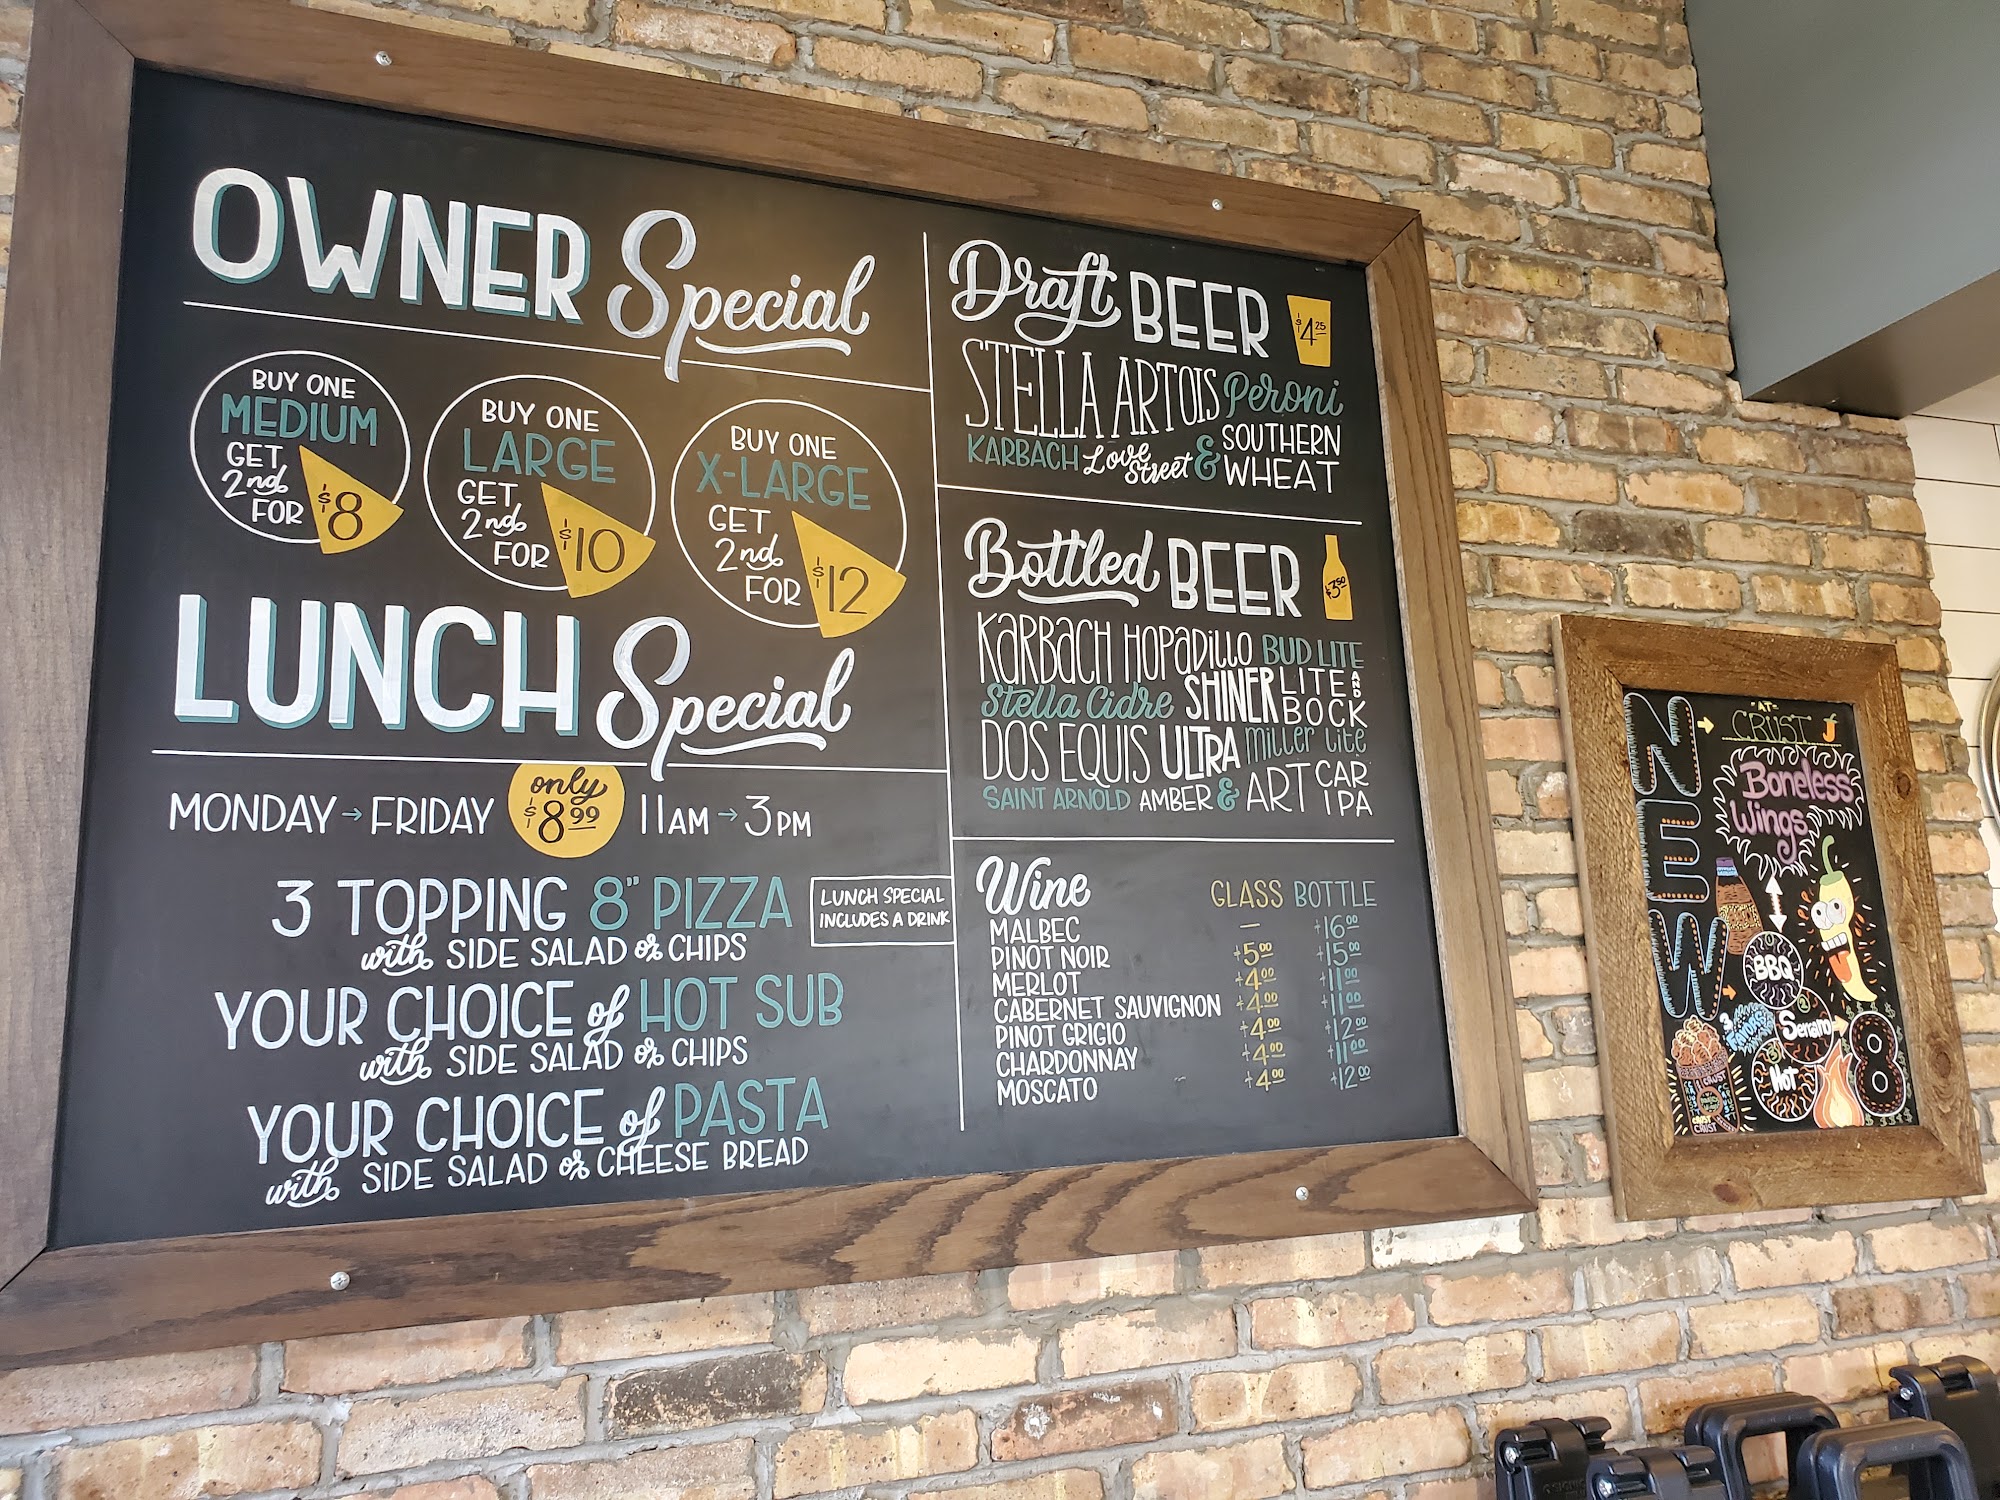 OWNER Special
BUY ONE
MEDIUM
GET
2nd
FOR
$8
BUY ONE
LARGE
GET
2nd
FOR
$10
BUY ONE
X-LARGE
GET
2nd
FOR
$12
LUNCH Special
MONDAY → FRIDAY only $8.99 11AM → 3PM
3 TOPPING 8" PIZZA
with SIDE SALAD or CHIPS
LUNCH SPECIAL
INCLUDES A DRINK
YOUR CHOICE of HOT SUB
with SIDE SALAD or CHIPS
YOUR CHOICE of PASTA
with SIDE SALAD or CHEESE BREAD
Draft BEER $4.25
STELLA ARTOIS Peroni
KARBACH Love Street & SOUTHERN WHEAT
Bottled BEER $3.50
KARBACH HOPADILLO BUD LITE
Stella Cidre SHINER LITE AND BOCK
DOS EQUIS ULTRA MILLER LITE
SAINT ARNOLD AMBER & ART CAR IPA
Wine GLASS BOTTLE
MALBEC — $16.00
PINOT NOIR $5.00 $15.00
MERLOT $4.00 $11.00
CABERNET SAUVIGNON $4.00 $11.00
PINOT GRIGIO $4.00 $12.00
CHARDONNAY $4.00 $11.00
MOSCATO $4.00 $12.00
NEW
AT
CRUST
Boneless
Wings
BBQ
Hot
8